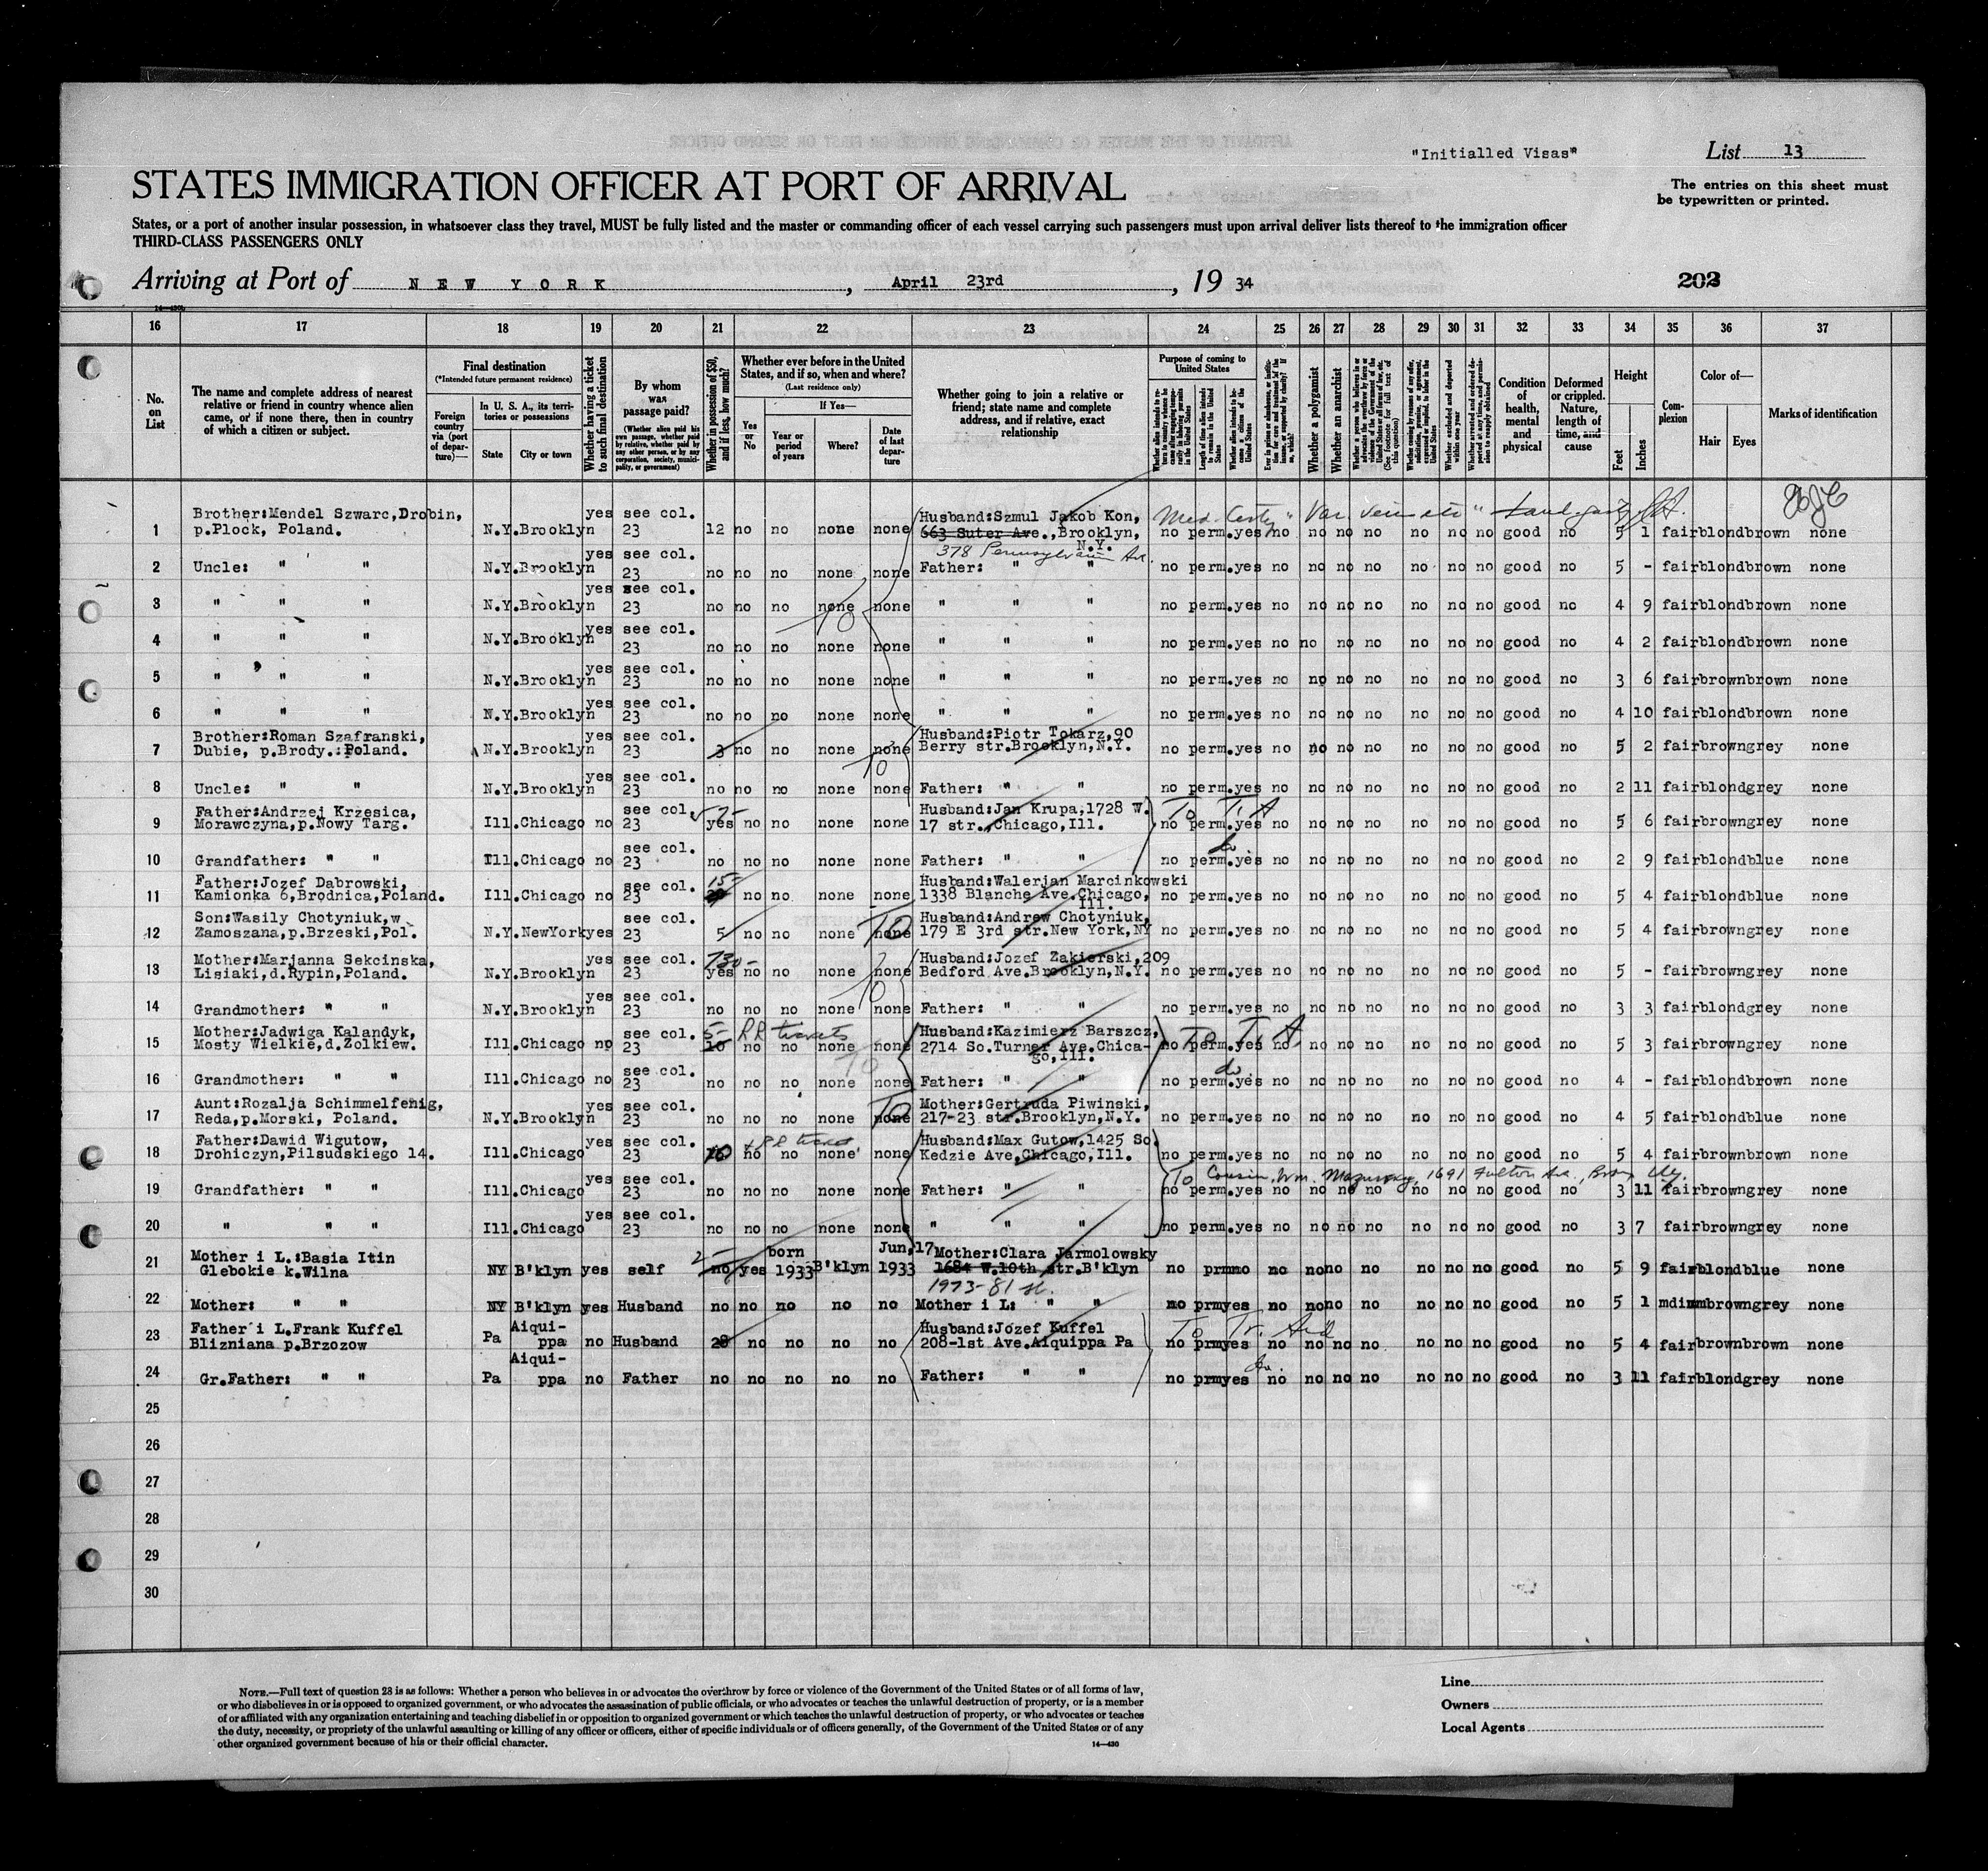 "Initialled Visas"
List 13
STATES IMMIGRATION OFFICER AT PORT OF ARRIVAL
The entries on this sheet must
be typewritten or printed.
States, or a port of another insular possession, in whatsoever class they travel, MUST be fully listed and the master or commanding officer of each vessel carrying such passengers must upon arrival deliver lists thereof to the immigration officer
THIRD-CLASS PASSENGERS ONLY
Arriving at Port of NEW YORK, April 23rd, 19 34
203
14—430
16 17 18 19 20 21 22 23 24 25 26 27 28 29 30 31 32 33 34 35 36 37
No. on List
The name and complete address of nearest relative or friend in country whence alien came, or if none there, then in country of which a citizen or subject.
Final destination
(*Intended future permanent residence)
Foreign country via (port of departure)—
In U. S. A., its territories or possessions
State City or town
Whether having a ticket to such final destination
By whom was passage paid?
(Whether alien paid his own passage, whether paid by relative, whether paid by any other person, or by any corporation, society, municipality, or government)
Whether in possession of $50, and if less, how much?
Whether ever before in the United States, and if so, when and where?
(Last residence only)
Yes or No
If Yes—
Year or period of years
Where?
Date of last departure
Whether going to join a relative or friend; state name and complete address, and if relative, exact relationship
Purpose of coming to United States
Length of time alien intends to remain in the United States
Whether alien intends to become a citizen of the United States
Whether a polygamist
Whether an anarchist
Condition of health, mental and physical
Deformed or crippled. Nature, length of time, and cause
Height
Feet Inches
Complexion
Color of—
Hair Eyes
Marks of identification
Med. Certf
1 Brother:Mendel Szwarc,Drobin, p.Plock, Poland. N.Y. Brooklyn yes see col. 23 12 no no none none Husband:Szmul Jakob Kon, 663 Suter Ave.,Brooklyn, N.Y. no perm. yes no no no no no no no good no 5 1 fair blond brown none
378 Pennsylvania Ave.
2 Uncle: " " N.Y. Brooklyn yes see col. 23 no no no none none Father: " " no perm. yes no no no no no no no good no 5 - fair blond brown none
3 " " " N.Y. Brooklyn yes see col. 23 no no no none none " " " no perm. yes no no no no no no no good no 4 9 fair blond brown none
4 " " " N.Y. Brooklyn yes see col. 23 no no no none none " " " no perm. yes no no no no no no no good no 4 2 fair blond brown none
5 " " " N.Y. Brooklyn yes see col. 23 no no no none none " " " no perm. yes no no no no no no no good no 3 6 fair brown brown none
6 " " " N.Y. Brooklyn yes see col. 23 no no no none none " " " no perm. yes no no no no no no no good no 4 10 fair blond brown none
7 Brother:Roman Szafranski, Dubie, p.Brody.:Poland. N.Y. Brooklyn yes see col. 23 3 no no none none Husband:Piotr Tokarz,90 Berry str.Brooklyn,N.Y. no perm. yes no no no no no no no good no 5 2 fair brown grey none
8 Uncle: " " N.Y. Brooklyn yes see col. 23 no no no none none Father: " " no perm. yes no no no no no no no good no 2 11 fair blond grey none
9 Father:Andrzej Krzesica, Morawczyna,p.Nowy Targ. Ill. Chicago no see col. 23 yes no no none none Husband:Jan Krupa,1728 W. 17 str.,Chicago,Ill. no perm. yes no no no no no no no good no 5 6 fair brown grey none
10 Grandfather: " " Ill. Chicago no see col. 23 no no no none none Father: " " no perm. yes no no no no no no no good no 2 9 fair blond blue none
11 Father:Jozef Dabrowski, Kamionka 6,Brodnica,Poland. Ill. Chicago no see col. 23 15- no no none none Husband:Walerjan Marcinkowski 1338 Blanche Ave.Chicago, Ill. no perm. yes no no no no no no no good no 5 4 fair blond blue none
12 Son:Wasily Chotyniuk,w Zamoszana,p.Brzeski,Pol. N.Y. NewYork yes see col. 23 5 no no none none Husband:Andrew Chotyniuk, 179 E 3rd str.New York,NY no perm. yes no no no no no no no good no 5 4 fair brown grey none
13 Mother:Marjanna Sekcinska, Lisiaki,d.Rypin,Poland. N.Y. Brooklyn yes see col. 23 yes no no none none Husband:Jozef Zakierski,209 Bedford Ave.Brooklyn,N.Y. no perm. yes no no no no no no no good no 5 - fair brown grey none
14 Grandmother: " " N.Y. Brooklyn yes see col. 23 no no no none none Father: " " no perm. yes no no no no no no no good no 3 3 fair blond grey none
15 Mother:Jadwiga Kalandyk, Mosty Wielkie,d.Zolkiew. Ill. Chicago no see col. 23 5- 10 RR tickets no no none none Husband:Kazimierz Barszcz, 2714 So.Turner Ave.Chicago,Ill. To T. A. no perm. yes no no no no no no no good no 5 3 fair brown grey none
16 Grandmother: " " Ill. Chicago no see col. 23 no no no none none Father: " " do no perm. yes no no no no no no no good no 4 - fair blond brown none
17 Aunt:Rozalja Schimmelfenig, Reda,p.Morski, Poland. N.Y. Brooklyn yes see col. 23 no no no none none Mother:Gertruda Piwinski, 217-23 str.Brooklyn,N.Y. no perm. yes no no no no no no no good no 4 5 fair blond blue none
18 Father:Dawid Wigutow, Drohiczyn,Pilsudskiego 14. Ill. Chicago yes see col. 23 10 no no none none Husband:Max Gutow,1425 So. Kedzie Ave,Chicago,Ill. no perm. yes no no no no no no no good no 5 4 fair brown brown none
To Cousin, Wm. 1691 Fulton Ave., Bronx NY.
19 Grandfather: " " Ill. Chicago yes see col. 23 no no no none none Father: " " no perm. yes no no no no no no no good no 3 11 fair brown grey none
20 " " " Ill. Chicago yes see col. 23 no no no none none " " " no perm. yes no no no no no no no good no 3 7 fair brown grey none
21 Mother i L.:Basia Itin Glebokie k.Wilna NY B'klyn yes self no yes born 1933 B'klyn Jun,17 1933 Mother:Clara Jarmolowsky 1684 W.10th str.B'klyn no prm no no no no no no no no good no 5 9 fair blond blue none
1973-81 st.
22 Mother: " " NY B'klyn yes Husband no no no no no Mother i L: " " no prm yes no no no no no no no good no 5 1 mdimm brown grey none
23 Father i L.Frank Kuffel Blizniana p.Brzozow Pa Aiquippa no Husband 28 no no no no Husband:Jozef Kuffel 208-1st Ave.Aiquippa Pa To Tr. Aid no prm yes no no no no no no no good no 5 4 fair brown brown none
24 Gr.Father: " " Pa Aiquippa no Father no no no no no Father: " " no prm yes no no no no no no no good no 3 11 fair blond grey none
25
26
27
28
29
30
NOTE.—Full text of question 28 is as follows: Whether a person who believes in or advocates the overthrow by force or violence of the Government of the United States or of all forms of law,
or who disbelieves in or is opposed to organized government, or who advocates the assassination of public officials, or who advocates or teaches the unlawful destruction of property, or is a member
of or affiliated with any organization entertaining and teaching disbelief in or opposition to organized government or which teaches the unlawful destruction of property, or who advocates or teaches
the duty, necessity, or propriety of the unlawful assaulting or killing of any officer or officers, either of specific individuals or of officers generally, of the Government of the United States or of any
other organized government because of his or their official character.
14—430
Line
Owners
Local Agents